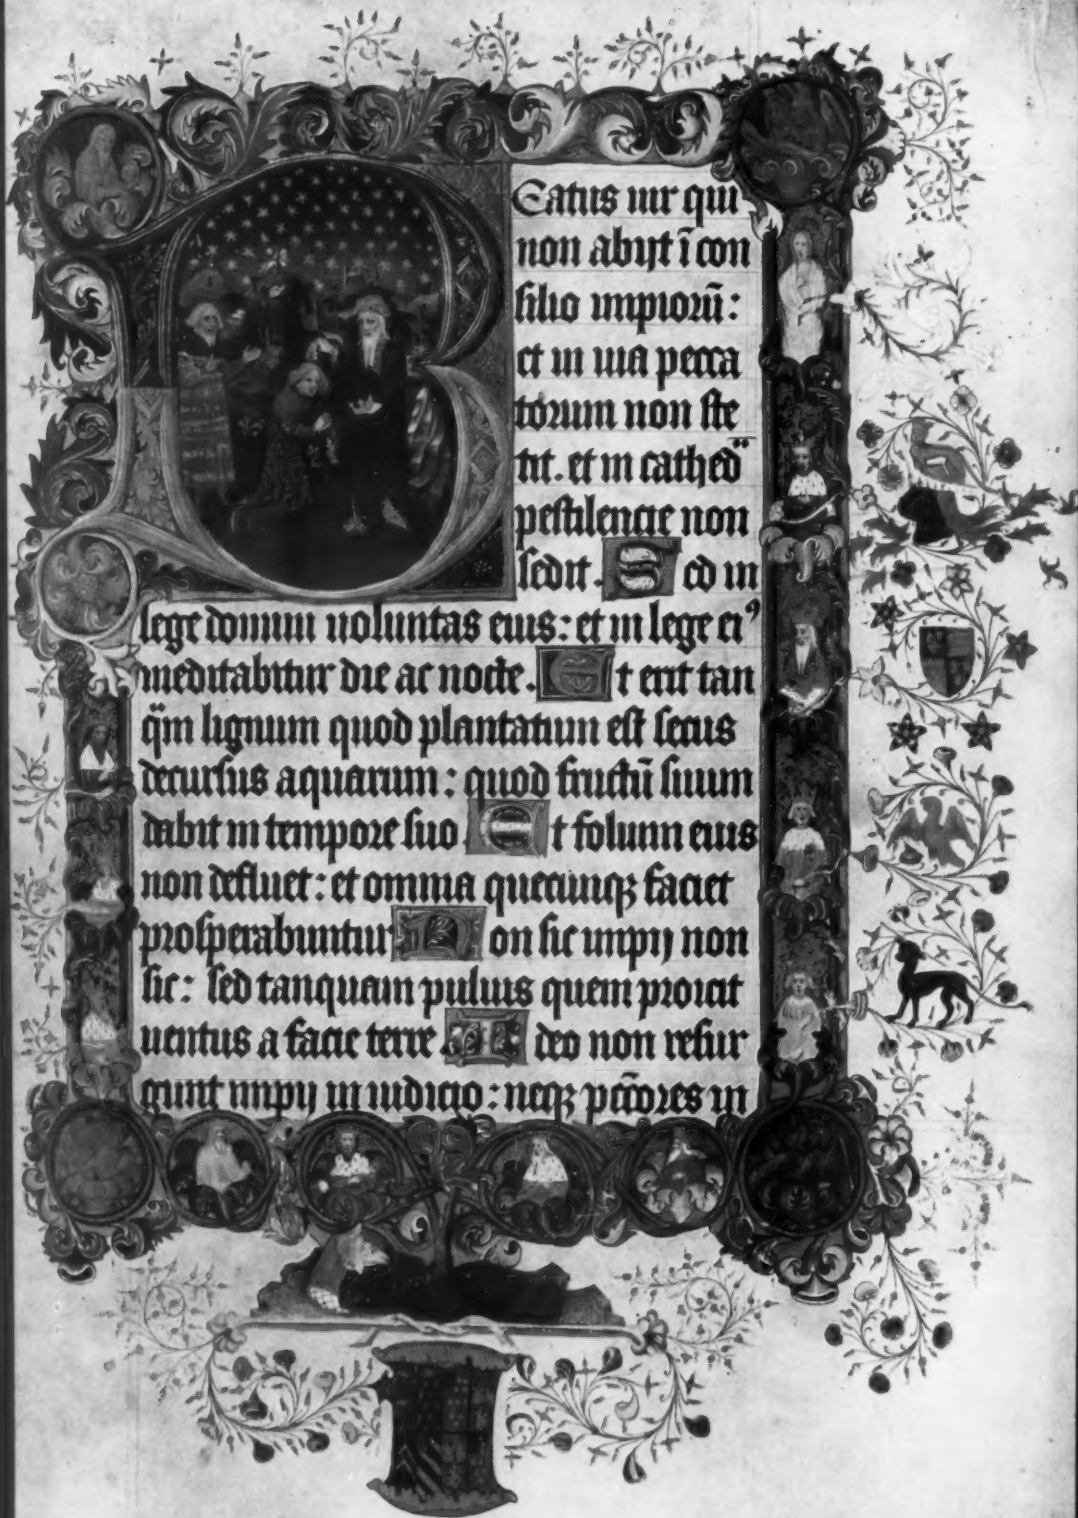 Beatus uir qui
non abijt ī con
silio impiorū:
et in uia pecca
torum non ste
tit. et in cathed̄
pestilencie non
sedit. Sed in
lege domini uoluntas eius: et in lege eiꝰ
meditabitur die ac nocte. Et erit tan
q̄m lignum quod plantatum est secus
decursus aquarum: quod fructū suum
dabit in tempore suo Et folium eius
non defluet: et omnia quecumqꝫ faciet
prosperabuntur Non sic impij non
sic: sed tanquam puluis quem proicit
uentus a facie terre Ideo non resur
gunt impij in iudicio: neqꝫ pc̄cōres in